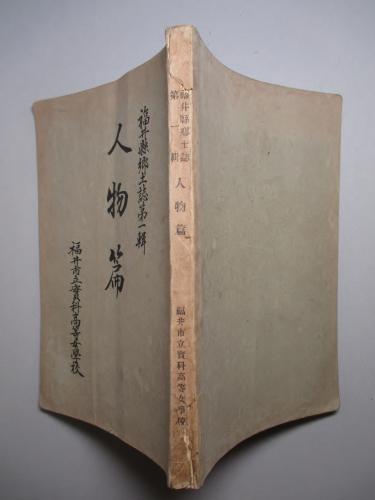 福井縣郷土誌第一輯
人物篇
福井市立實科高等女學校
福井縣郷土誌
第一輯
人物篇
福井市立實科高等女學校